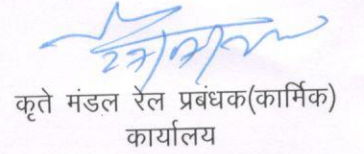 कृते मंडल रेल प्रबंधक(कार्मिक)
कार्यालय